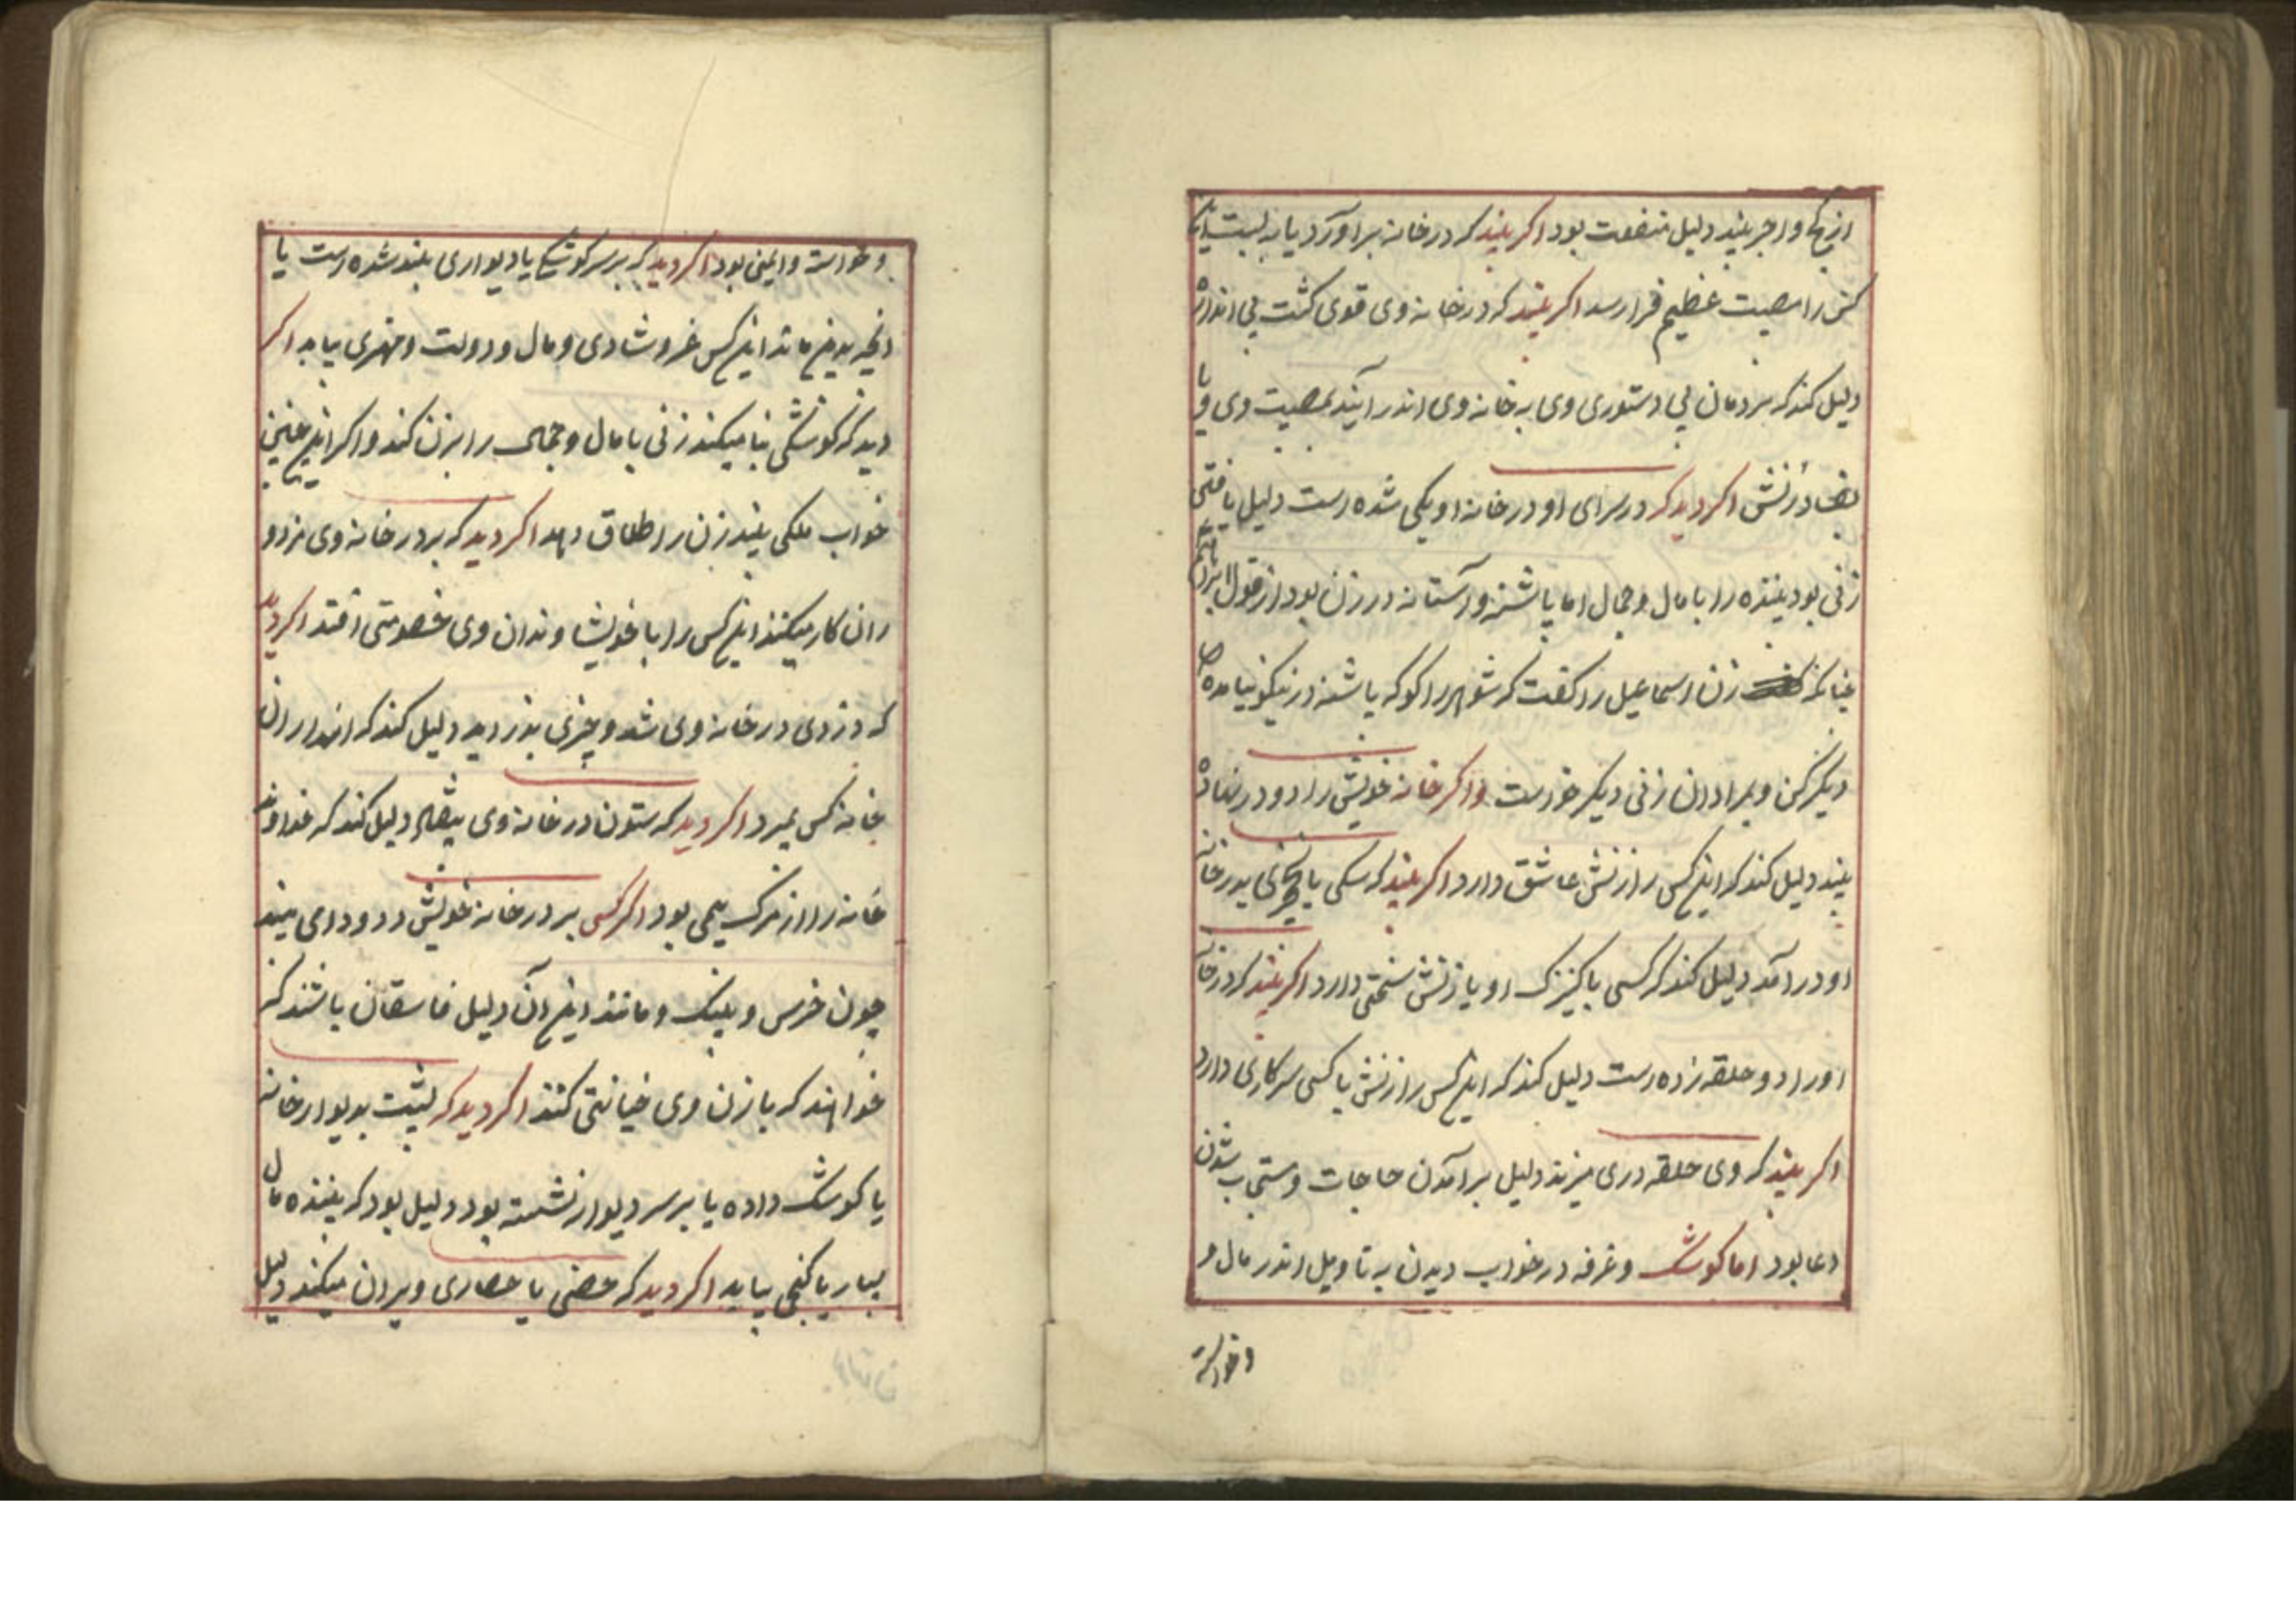 از گچ و اجر بیند دلیل منفعت بود اکر بیند که در خانه براورد یا به بست
کس را مصیبت عظیم فرا رسد اکر بیند که در خانه وی قوی کشت بی اندازه
دلیل کند که مردمان بی دستوری وی به خانه وی اندر ایند بمصیبت وی و یا
در زنش اکر دید که در سرای او در خانه او یکی شده است دلیل یافتن
زنی بود بیننده را با مال و جمال اما پاشنه و آستانه در زن بود از قول ابراهیم
چنانکه زن اسماعیل را کفت که شوهر را کو که پاشنه در نیکو نیامده
دیکر کن و مراد ان زنی دیکر خواست و اکر خانه خویش را دو در نهاده
بیند دلیل کند که اینکس را زنش عاشق دارد اکر بیند که سکی یا در خانه
او درامد دلیل کند که کسی با کنیزک او یا زنش دارد اکر بیند که در خانه
او را دو حلقه زده است دلیل کند که اینکس را زنش با کسی سر کاری دارد
اکر بیند که وی حلقه دری میزند دلیل برامدن حاجات و مستجاب شدن
دعا بود اما کوشک و غرفه در خواب دیدن به تاویل اندر مال و
و خواسته
و خواسته و ایمنی بود اکر دید که بر سر کوشکی یا دیواری بلند شده است یا
انچه بدین ماند اینکس عز و شادی و مال و دولت و مهتری بیابد اکر
دید که کوشکی بنا میکند زنی با مال و جمال را بزن کند و اکر این چنین
خواب ملکی بیند زن را طلاق دهد اکر دید که بر در خانه وی مزدو
ران کار میکنند اینکس را با خویشاوندان وی خصومتی افتد اکر دید
که دزدی در خانه وی شد و چیزی بدزدید دلیل کند که اندر ان
خانه کس بمیرد اکر دید که ستون در خانه وی بیفتاد دلیل کند که خداوند
خانه را از مرک بیمی بود اکر کسی بر در خانه خویش دد و دامی بیند
چون خرس و پلنک و مانند این آن دلیل فاسقان باشند که
خواهند که با زن وی خیانتی کنند اکر دید که پشت بدیوار خانه
یا کوشک داده یا بر سر دیوار نشسته بود دلیل بود که بیننده مال
بسار یا کنجی بیابد اکر دید که حصنی یا حصاری ویران میکند دلیل